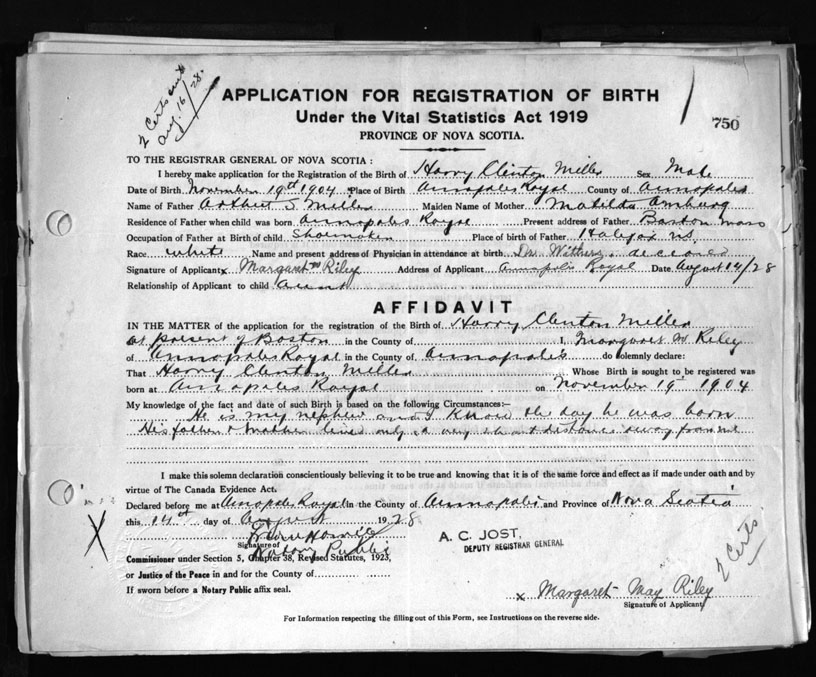 2 Certs sent
Aug. 16/28.
APPLICATION FOR REGISTRATION OF BIRTH
750
Under the Vital Statistics Act 1919
PROVINCE OF NOVA SCOTIA.
TO THE REGISTRAR GENERAL OF NOVA SCOTIA :
I hereby make application for the Registration of the Birth of Harry Clinton Miller Sex Male
Date of Birth November 19th 1904 Place of Birth Annapolis Royal County of Annapolis
Name of Father Arthur S Miller Maiden Name of Mother Matilda Amburg
Residence of Father when child was born Annapolis Royal Present address of Father Boston Mass
Occupation of Father at Birth of child Shoemaker Place of birth of Father Halifax NS.
Race White Name and present address of Physician in attendance at birth Dr Withers, deceased
Signature of Applicant x Margaret M Riley Address of Applicant Annapolis Royal Date August 14/28
Relationship of Applicant to child Aunt
AFFIDAVIT
IN THE MATTER of the application for the registration of the Birth of Harry Clinton Miller
at present of Boston in the County of I, Margaret M Riley
of Annapolis Royal in the County of Annapolis do solemnly declare:
That Harry Clinton Miller Whose Birth is sought to be registered was
born at Annapolis Royal on November 19th 1904
My knowledge of the fact and date of such Birth is based on the following Circumstances:—
He is my nephew and I know the day he was born
His father & mother lived only a very short distance away from me
I make this solemn declaration conscientiously believing it to be true and knowing that it is of the same force and effect as if made under oath and by
virtue of The Canada Evidence Act.
Declared before me at Anapolis Royal In the County of Annapolis and Province of Nova Scotia
this 14th day of August 1928
Signature of
Notary Public
A. C. JOST,
DEPUTY REGISTRAR GENERAL
2 Certs
Commissioner under Section 5, Chapter 38, Revised Statutes, 1923,
or Justice of the Peace in and for the County of
If sworn before a Notary Public affix seal.
x Margaret May Riley
Signature of Applicant
For Information respecting the filling out of this Form, see Instructions on the reverse side.